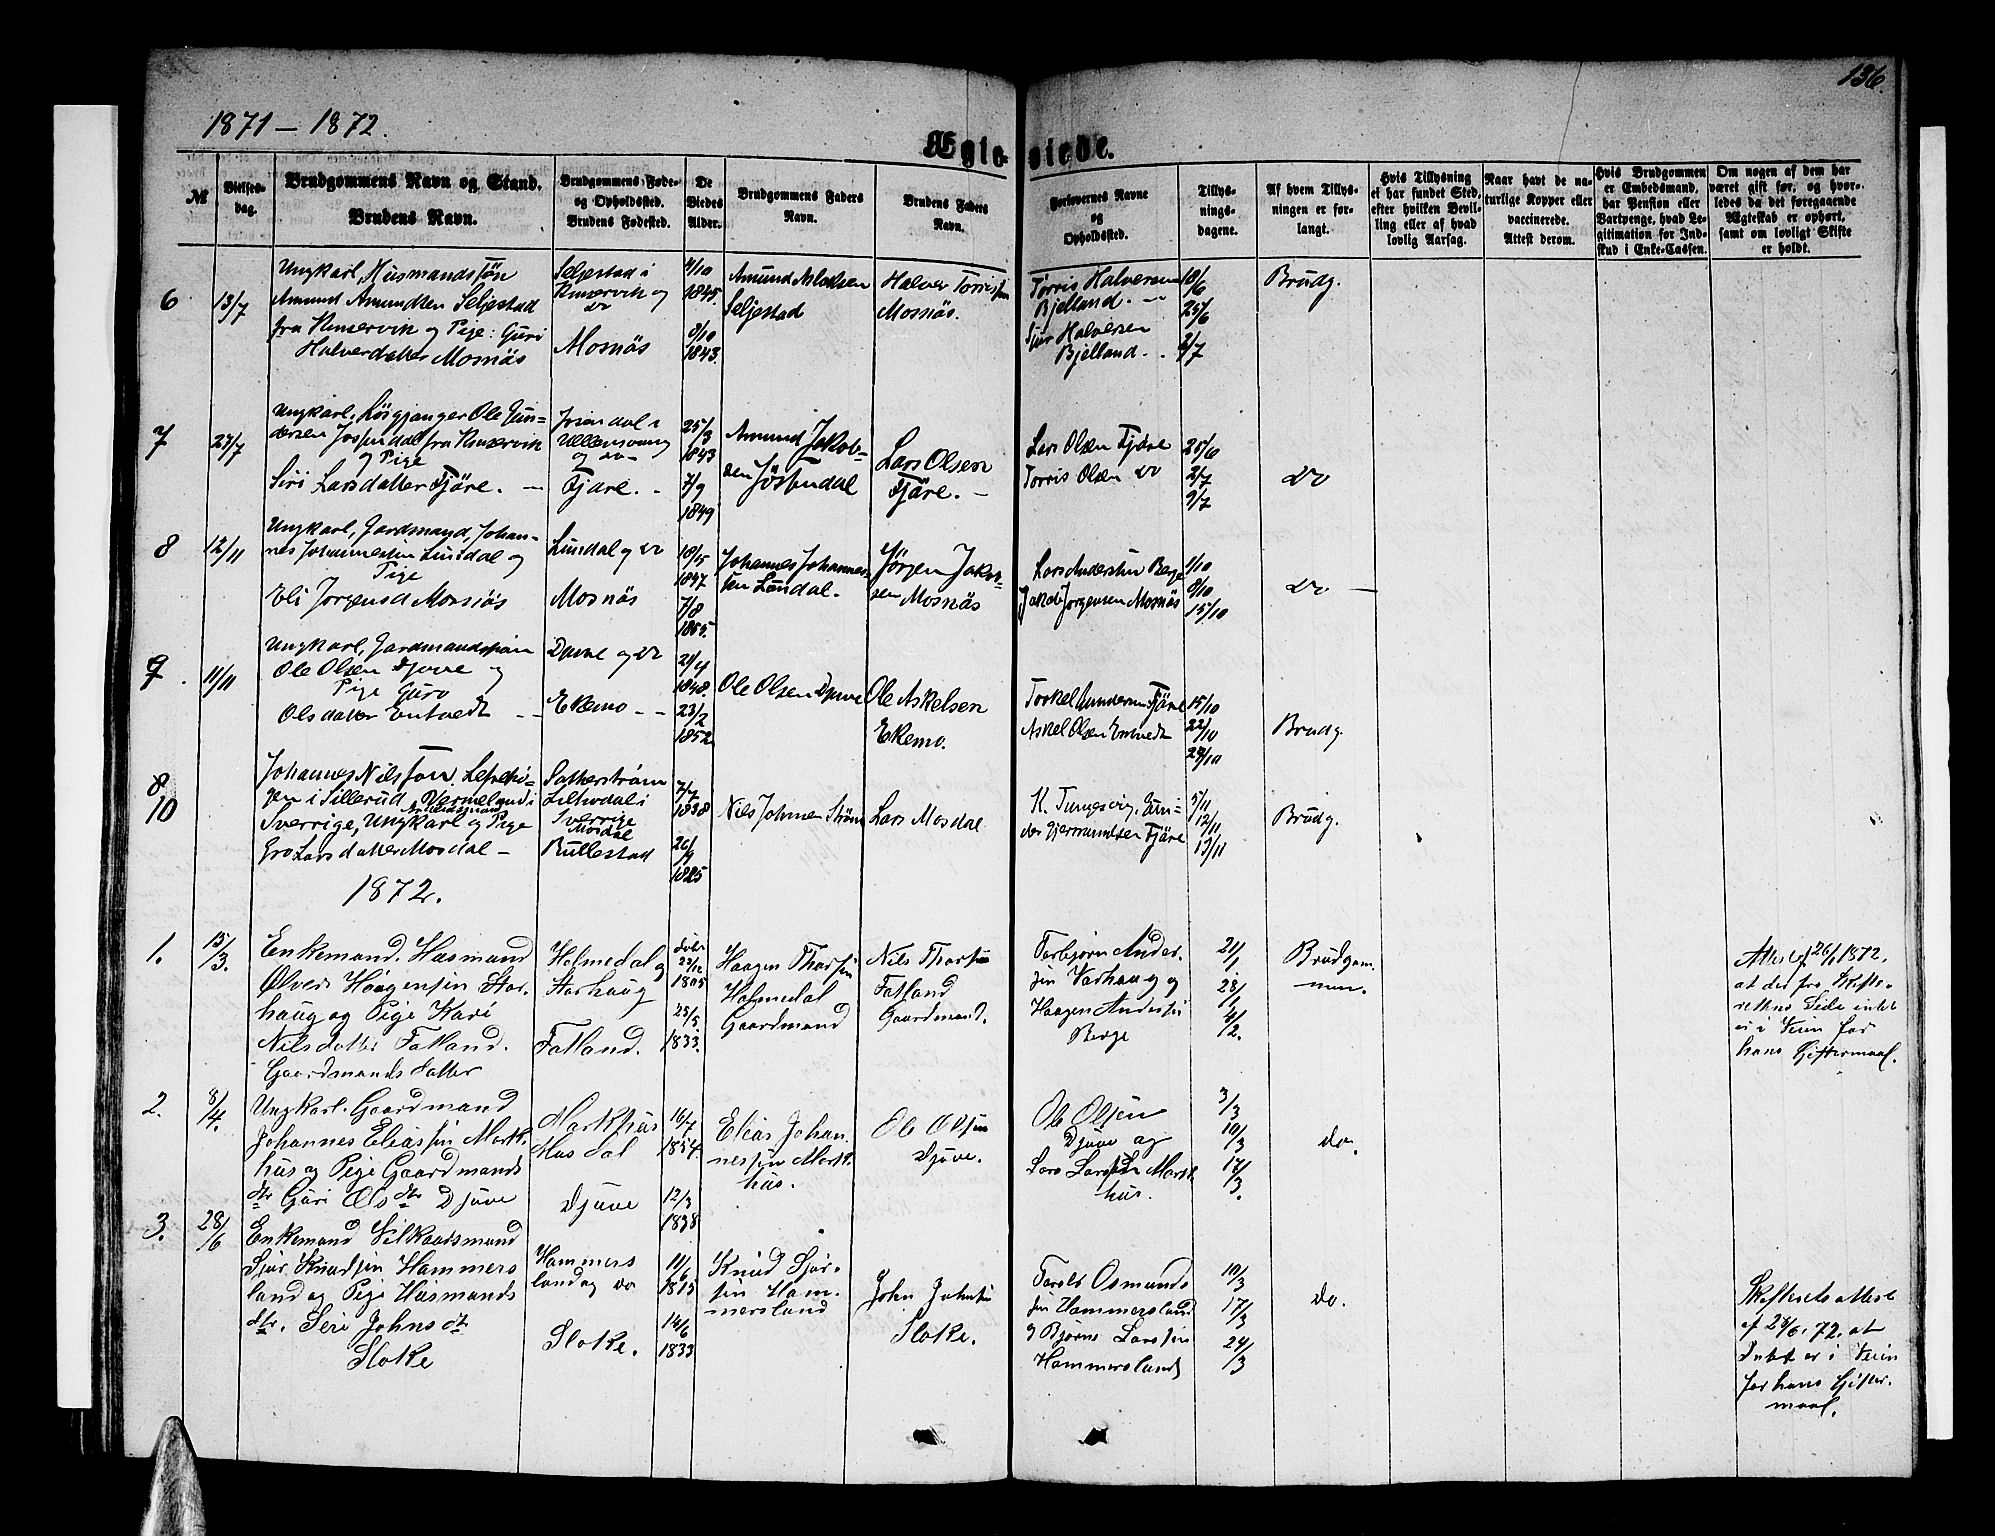 136.
1871 – 1872.
Ægteviede.
№
Vielses-
dag.
Brudgommens Navn og Stand.
Brudens Navn.
Brudgommens Føde-
og Opholdssted.
Brudens Fødested.
De
Viedes
Alder.
Brudgommens Faders
Navn.
Brudens Faders
Navn.
Forlovernes Navne
og
Opholdssted.
Tillys-
nings-
dagene.
Af hvem Tillys-
ningen er for-
langt.
Hvis Tillysning
ei har fundet Sted,
efter hvilken Bevil-
ling eller af hvad
lovlig Aarsag.
Naar havt de na-
turlige Kopper eller
vaccinerede.
Attest derom.
Hvis Brudgommen
er Embedsmand,
har Pension eller
Vartpenge, hvad Le-
gitimation for Ind-
skud i Enke-Cassen.
Om nogen af dem har
været gift før, og hvor-
ledes da det foregaaende
Ægteskab er ophørt,
samt om lovligt Skifte
er holdt.
6
13/7
Ungkarl, Husmandssøn
Amund Amundsen Seljestad
fra Kinservik og Pige: Guri
Halversdatter Mosnäs
Seljestad i
Kinservik og
do
Mosnäs
4/10
1845.
8/10
1843.
Amund Aslaksen
Seljestad
Halver Torrissen
Mosnäs.
Torris Halversen
Bjelland. —
Sjur Halversen
Bjelland. .
18/6
25/6
2/7
Brudg.
7
27/7
Ungkarl, Løsgjænger Ole
fra Kinservik
og Pige
Siri Larsdatter Fjäre. —
i
Ullensvang
og do
Fjäre. -
25/3
1843
7/9
1849
Amund Jakob-
sen
Lars Olsen
Fjäre. —
Lars Olsen Fjäre
Torris Olsen do
25/6
2/7
9/7
do
8
12/11
Ungkarl, Gardmand, Johan-
nes Johannessen Lundal og
Pige
Eli Jørgensd Mosnäs
Lundal og do
Mosnäs
1847
7/8
1855.
Johannes Johannes-
sen Lundal.
Jørgen Jakob-
sen Mosnäs
Lars Anderssen Berge
Jakob Jørgensen Mosnäs
1/10
8/10
15/10
do —
9.
11/11
Ungkarl, Gardmandssøn
Ole Olsen Djuve og
Pige Guro
Olsdatter Entvedt - -
Djuve og do
Ekemo - -
21/4
1848.
23/2
1852
Ole Olsen Djuve
Ole Askelsen
Ekemo.
Torkel Gundersen Fjäre
Askel Olsen Entvedt
15/10
22/10
29/10
Brudg.
10
Johannes Nilsson
i Sillerud Vermeland i
Sverrige, Ungkarl og Pige
Gro Larsdatter Mosdal —
i
Sverrige
Mosdal
Rullestad
7/7
1838
26/9
1825
Nils
Lars Mosdal
K. Tungesvig,
Fjäre
5/11
12/11
13/11
Brudg.
1872.
1.
15/3.
Enkemand. Husmand
Ølver Haagensen Stor-
haug og Pige Kari
Nilsdatter Fatland.
Gaardmandsdatter
Holmedal og
Storhaug
Fatland.
døbt
27/12
1805
25/5
1833.
Haagen Thorsen
Holmedal
Gaardmand
Nils Thorsen
Fatland
Gaardmand.
Torbjørn Ander-
sen Varhaug og
Haagen Andersen
Berge
21/1
28/1
4/2.
Brudgom-
men.
Attest af 26/1 1872.
at der fra Skifte-
rettens Side intet
er i Veien for
hans Giftermaal.
2.
8/4.
Ungkarl. Gaardmand
Johannes Eliassen Mark-
hus og Pige Gaardmands
dtr Guri Ols dtr Djuve
Markhus
Mosdal
Djuve
16/7
1854.
12/3
1838
Elias Johan-
nessen Mark-
hus.
Ole Olsen
Djuve.
Ole Olsen
Djuve og
Lars Larsen Mark-
hus.
3/3
10/3
17/3.
do.
3.
28/6
Enkemand Vilkaarsmand
Sjur Knudsen Hammers-
land og Pige Husmands
dtr. Siri Johns dtr
Sloke
Hammers
land og do
Sloke.
11/6
1815
14/6
1833
Knud Sjur-
sen Ham-
mersland
John Johnsen
Sloke.
Osmunds-
sen Hammersland
og Bjørne Larssen
Hammersland
10/3
17/3
24/3
do.
Skifteretsattest
af 28/6. 72. at
Intet er i Veien
for hans Gifter-
maal.